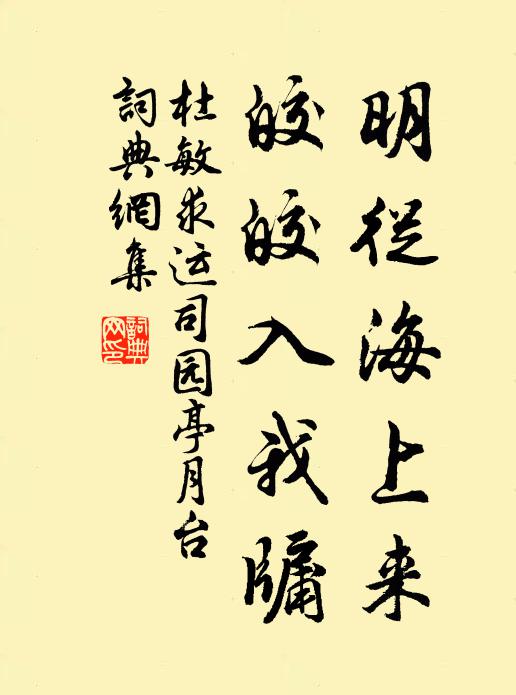 明從海上来
皎皎入我牖
杜敏求运司园亭月台
詞典網集
詞典
网印